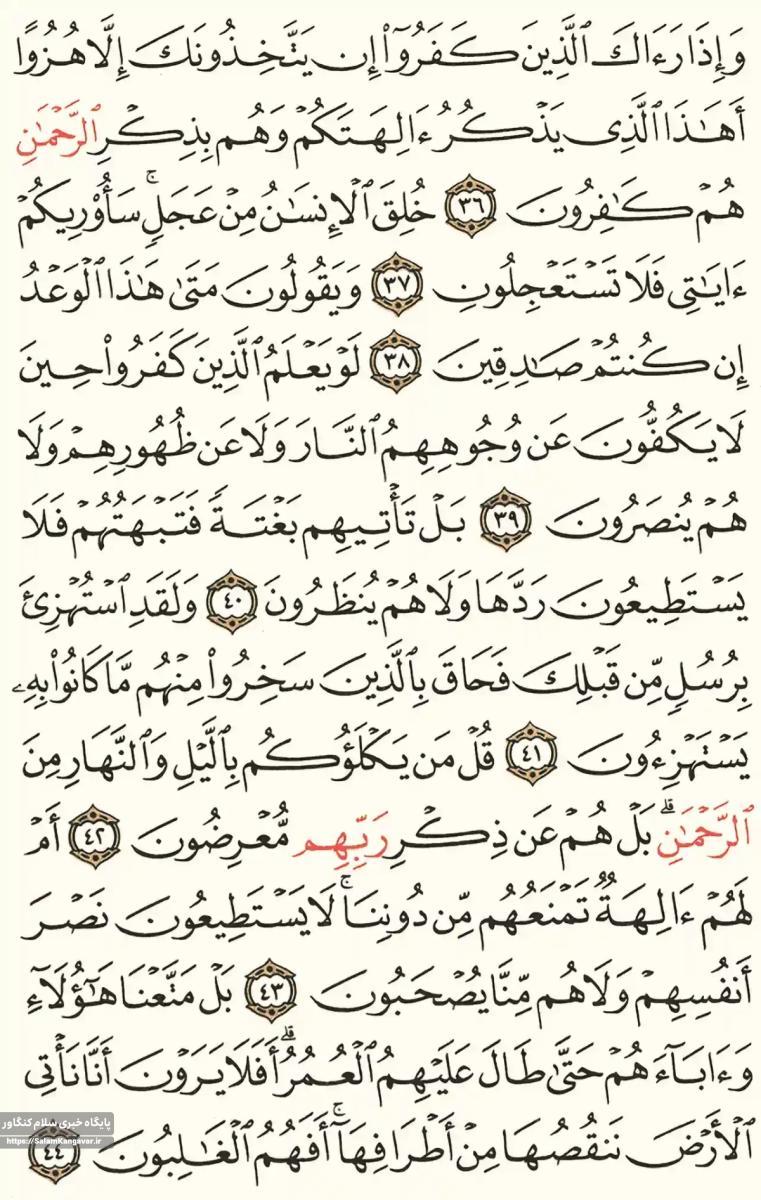 وَإِذَا رَءَاكَ ٱلَّذِينَ كَفَرُوٓا۟ إِن يَتَّخِذُونَكَ إِلَّا هُزُوًا
أَهَـٰذَا ٱلَّذِى يَذْكُرُ ءَالِهَتَكُمْ وَهُم بِذِكْرِ ٱلرَّحْمَـٰنِ
هُمْ كَـٰفِرُونَ ٣٦ خُلِقَ ٱلْإِنسَـٰنُ مِنْ عَجَلٍ ۚ سَأُو۟رِيكُمْ
ءَايَـٰتِى فَلَا تَسْتَعْجِلُونِ ٣٧ وَيَقُولُونَ مَتَىٰ هَـٰذَا ٱلْوَعْدُ
إِن كُنتُمْ صَـٰدِقِينَ ٣٨ لَوْ يَعْلَمُ ٱلَّذِينَ كَفَرُوا۟ حِينَ
لَا يَكُفُّونَ عَن وُجُوهِهِمُ ٱلنَّارَ وَلَا عَن ظُهُورِهِمْ وَلَا
هُمْ يُنصَرُونَ ٣٩ بَلْ تَأْتِيهِم بَغْتَةً فَتَبْهَتُهُمْ فَلَا
يَسْتَطِيعُونَ رَدَّهَا وَلَا هُمْ يُنظَرُونَ ٤٠ وَلَقَدِ ٱسْتُهْزِئَ
بِرُسُلٍ مِّن قَبْلِكَ فَحَاقَ بِٱلَّذِينَ سَخِرُوا۟ مِنْهُم مَّا كَانُوا۟ بِهِۦ
يَسْتَهْزِءُونَ ٤١ قُلْ مَن يَكْلَؤُكُم بِٱلَّيْلِ وَٱلنَّهَارِ مِنَ
ٱلرَّحْمَـٰنِ ۗ بَلْ هُمْ عَن ذِكْرِ رَبِّهِم مُّعْرِضُونَ ٤٢ أَمْ
لَهُمْ ءَالِهَةٌ تَمْنَعُهُم مِّن دُونِنَا ۚ لَا يَسْتَطِيعُونَ نَصْرَ
أَنفُسِهِمْ وَلَا هُم مِّنَّا يُصْحَبُونَ ٤٣ بَلْ مَتَّعْنَا هَـٰٓؤُلَآءِ
وَءَابَآءَهُمْ حَتَّىٰ طَالَ عَلَيْهِمُ ٱلْعُمُرُ ۗ أَفَلَا يَرَوْنَ أَنَّا نَأْتِى
ٱلْأَرْضَ نَنقُصُهَا مِنْ أَطْرَافِهَآ ۚ أَفَهُمُ ٱلْغَـٰلِبُونَ ٤٤
پایگاه خبری سلام کنگاور
https://SalamKangavar.ir